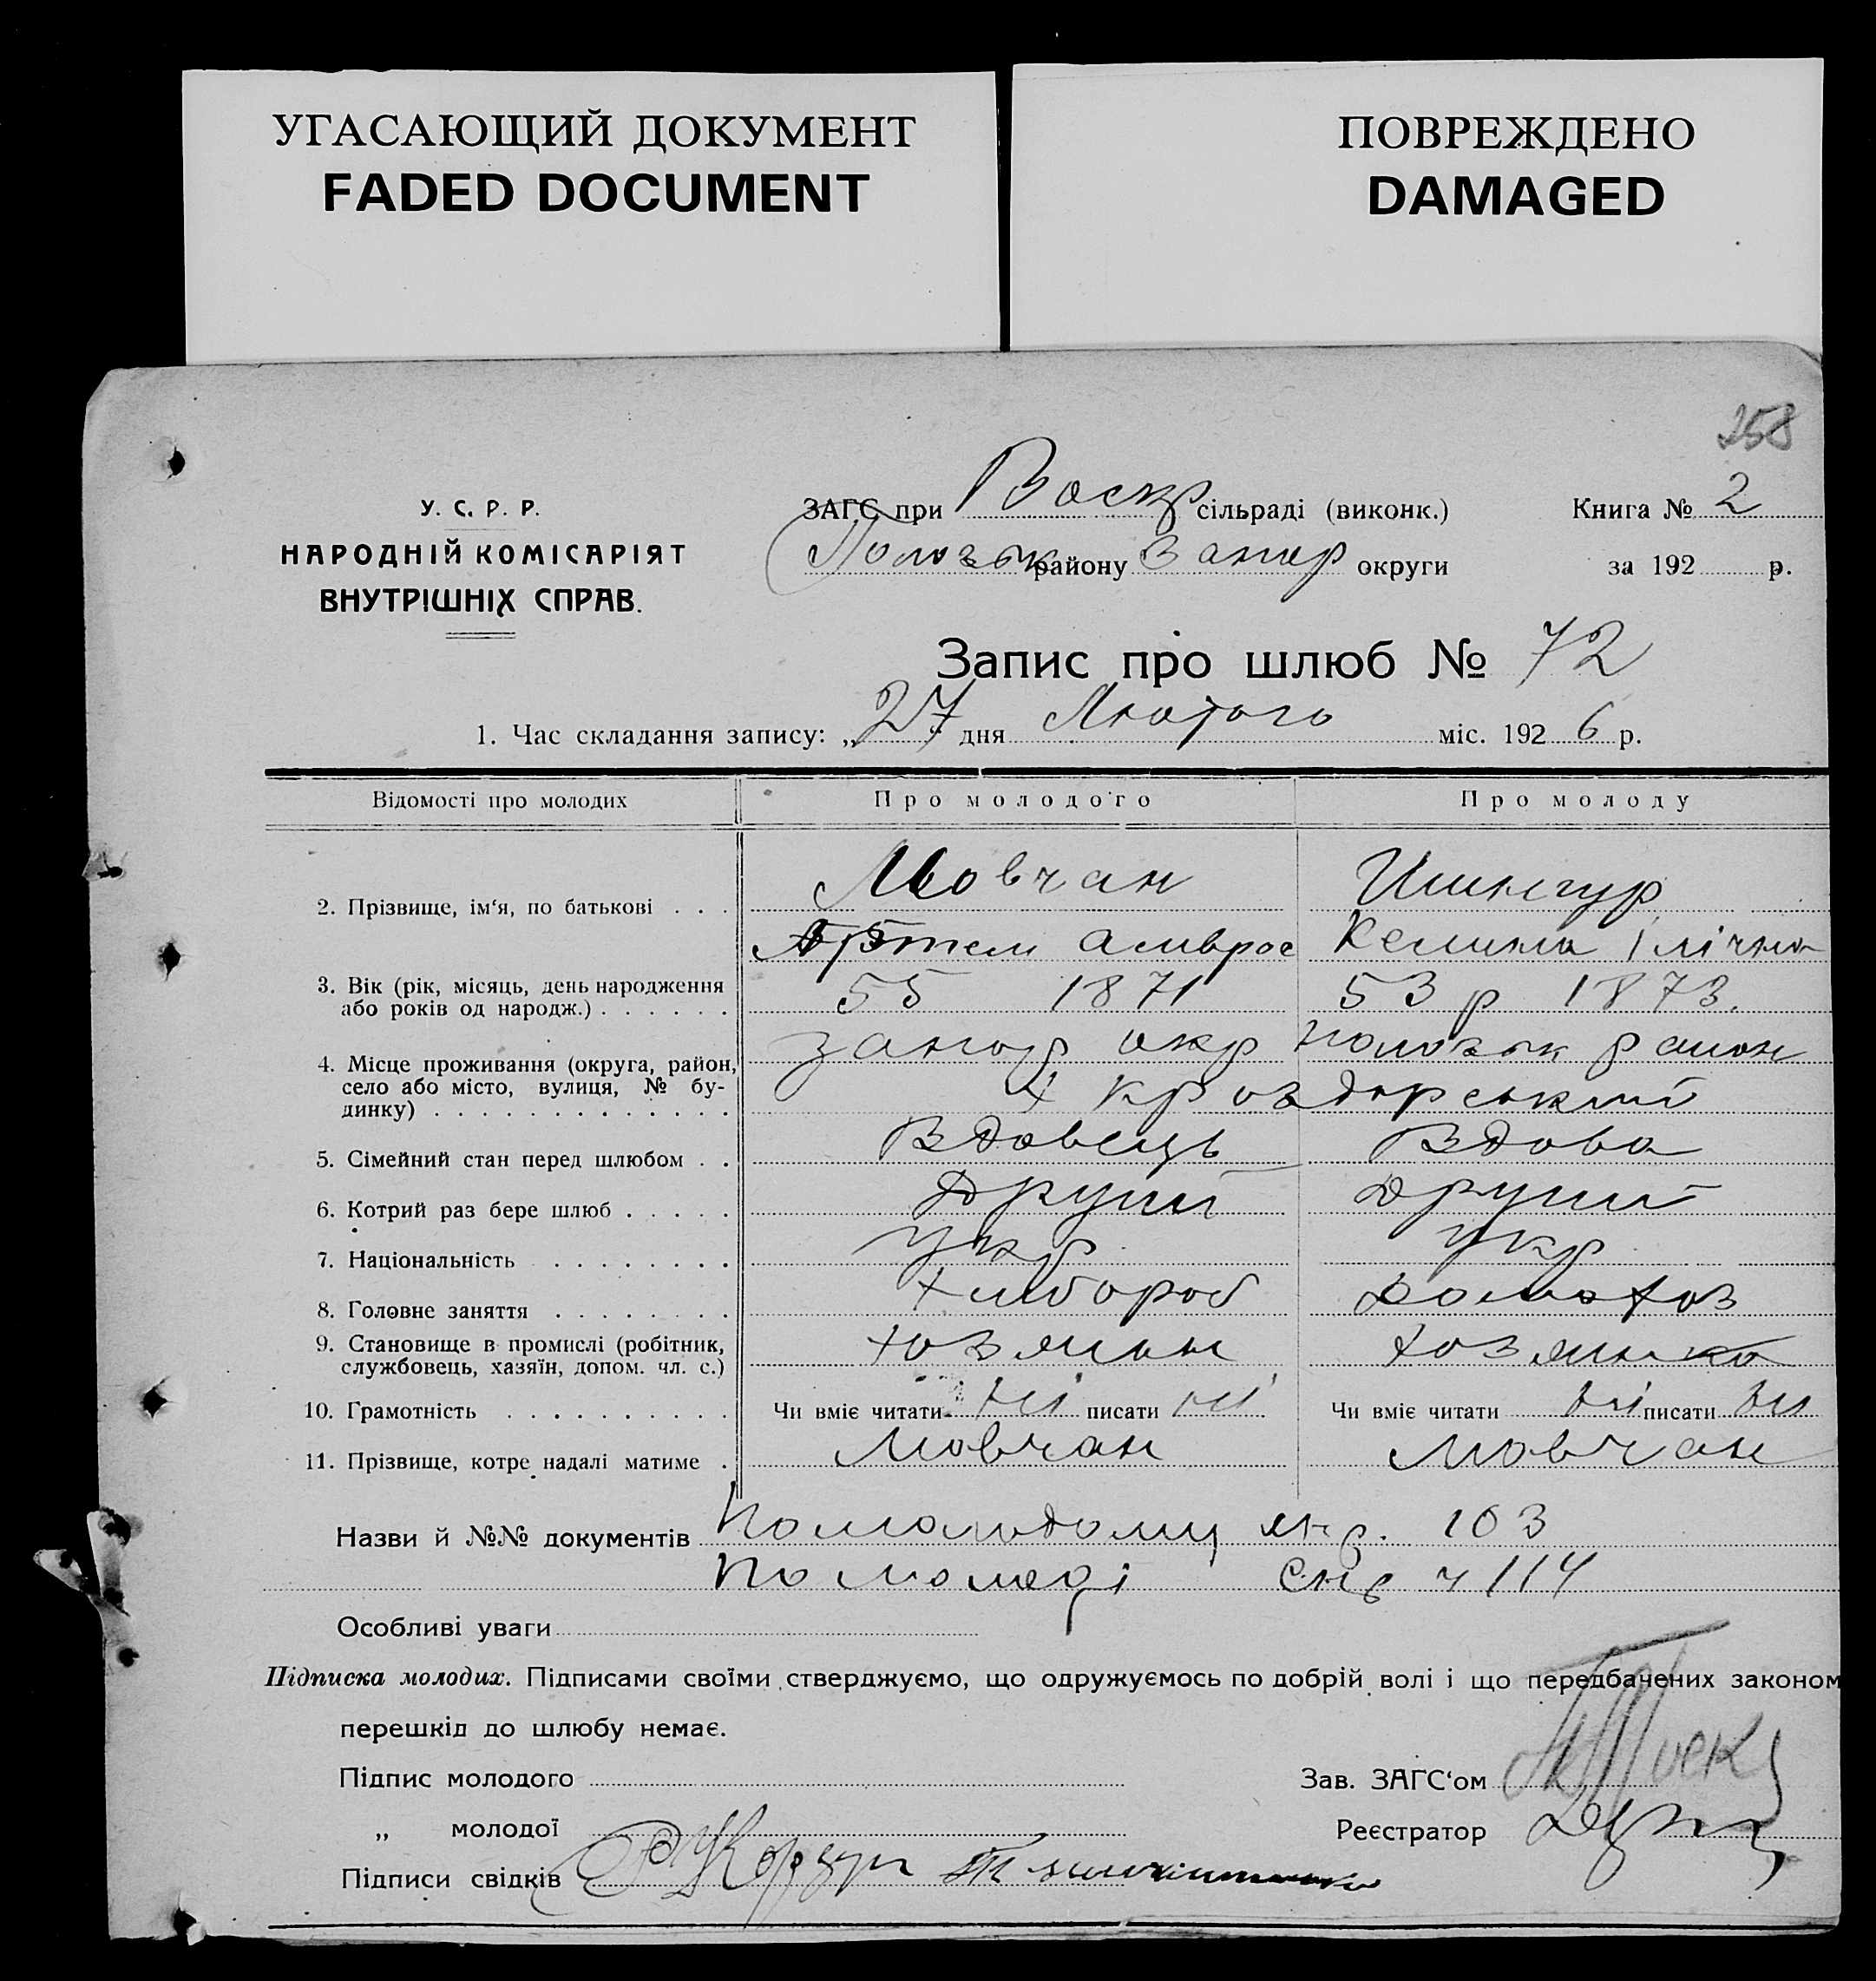 УГАСАЮЩИЙ ДОКУМЕНТ
FADED DOCUMENT
ПОВРЕЖДЕНО
DAMAGED
258
У. С. Р. Р.
НАРОДНІЙ КОМІСАРІЯТ
ВНУТРІШНІХ СПРАВ.
ЗАГС при Воскр сільраді (виконк.) Книга № 2
району Запор округи за 192 р.
Запис про шлюб № 72
1. Час складання запису: „27 дня Лютого міс. 1926 р.
Відомості про молодих Про молодого Про молоду
Мовчан
2. Прізвище, ім'я, по батькові . . .
Артем Амврос Ілічна
3. Вік (рік, місяць, день народження або років од народж.) . . . . . . 55 1871 53 р 1873.
4. Місце проживання (округа, район, село або місто, вулиця, № будинку) . . . . . . . . . . . . . запор окр район
х
5. Сімейний стан перед шлюбом . . Вдовець Вдова
6. Котрий раз бере шлюб . . . . . Другий Другий
7. Національність . . . . . . . . Укр Укр
8. Головне заняття . . . . . . . Хлібороб Домохоз
9. Становище в промислі (робітник, службовець, хазяїн, допом. чл. с.) Хозяин Хозяинка
10. Грамотність . . . . . . . . . . Чи вміє читати ні писати ні Чи вміє читати ні писати ні
11. Прізвище, котре надалі матиме . Мовчан Мовчан
Назви й №№ документів По молодому 103
По молоді ч 114
Особливі уваги
Підписка молодих. Підписами своїми стверджуємо, що одружуємось по добрій волі і що передбачених законом
перешкід до шлюбу немає.
Підпис молодого Зав. ЗАГС'ом
„ молодої Реєстратор
Підписи свідків